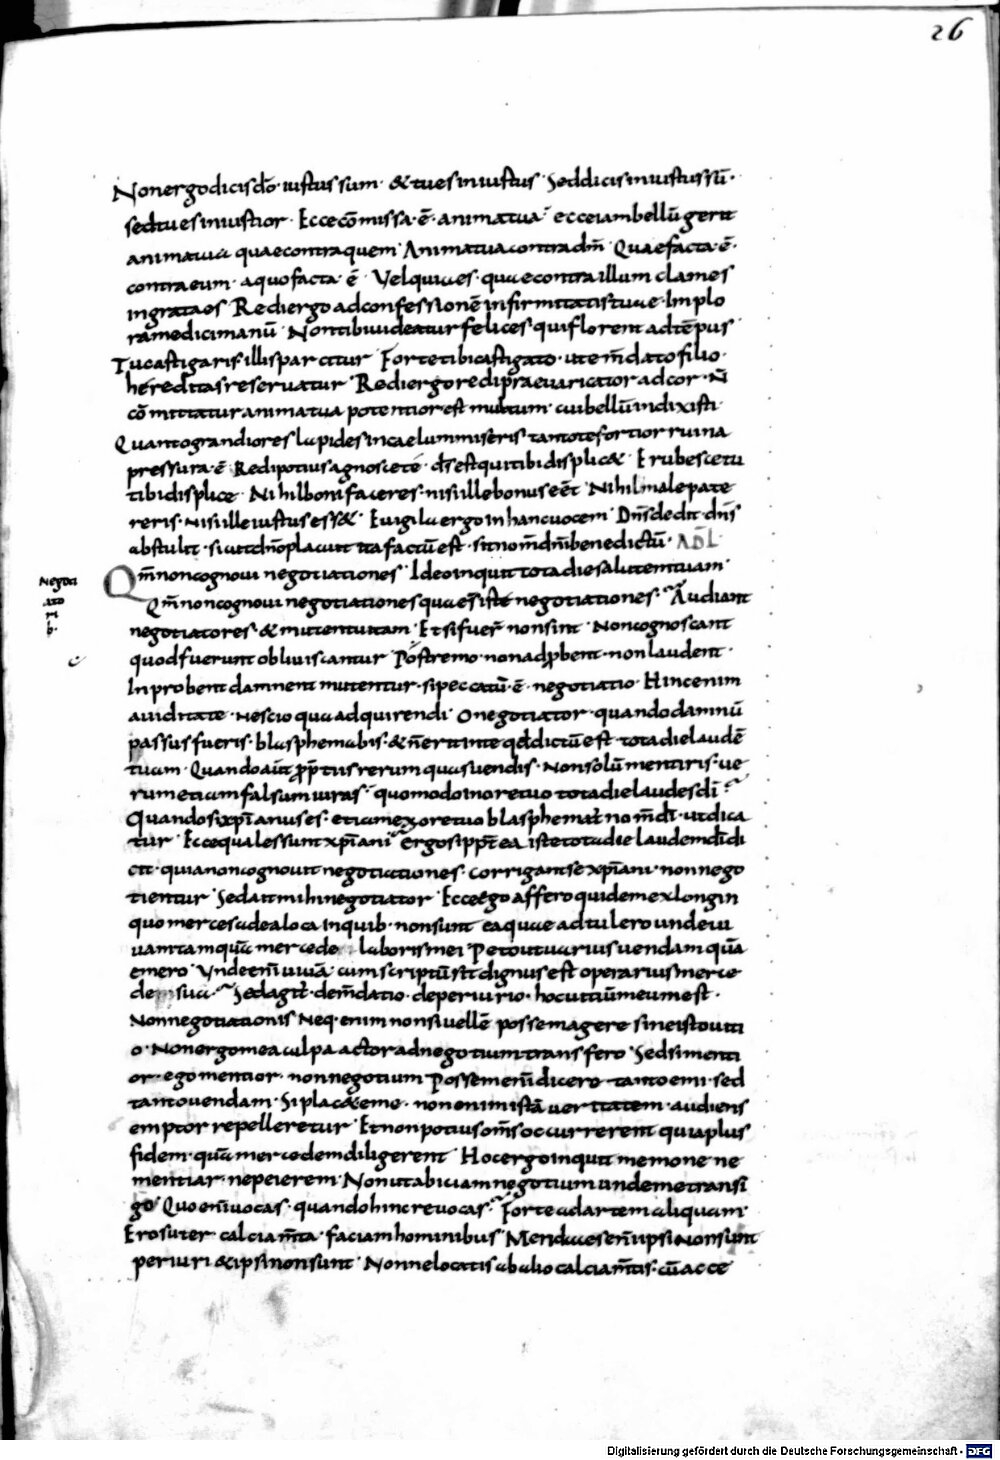 26
Non ergo dicis do͞ · iustus sum · & tu es iniustus · Sed dicis iniustus su͞ ·
sed tu es iustior · Ecce co͞missa · e͞ · anima tua · ecce iam bellu͞ gerit
anima tua quae contra quem · Anima tua contra dm͞ · Quae facta · e͞ ·
contra eum · a quo facta · e͞ · Vel quia es · quae contra illum clames
ingrata es · Redi ergo ad confessione͞ infirmitatis tuae · Implo
ra medici manu͞ · Non tibi uideatur felices qui florent ad te͞pus
Tu castigaris illis parcitur · Forte tibi castigato · ut em͞dato filio ·
hereditas reseruatur · Redi ergo redi praeuaricator ad cor · N͞
co͞mittatur anima tua potentior est multum · cui bellu͞ indixisti
Quanto grandiores lapides in caelum miseris tanto te fortior ruina
pressura · e͞ · Redi potius agnosce te · ds͞ est qui tibi displic& · Erubesce tu
tibi displice · Nihil boni faceres · nisi ille bonus ee͞t · Nihil male pate
reris · nisi ille iustus ess& · Euigila ergo in hanc uocem · Dns͞ dedit · dns͞
abstulit · sicut dno͞ placuit ita factu͞ est · sit nom͞ dni͞ benedictu͞ ·
Qm͞ non cognoui negotiationes · Ideo inquit tota die salutem tuam
Qm͞ non cognoui negotiationes quae s͞ iste negotiationes · Audiant
negotiatores · & mutent uitam · Et si fuer͞ non sint · Non cognoscant
quod fuerunt obliuiscantur · Postremo · non adprobent · non laudent ·
Inprobent damnent mutentur · si peccatu͞ · e͞ · negotiatio · Hinc enim
auiditate · nescio qua adquirendi · O negotiator · quando damnu͞
passus fueris · blasphemabis · & n͞ erit in te qd͞ dictu͞ est · tota die laude͞
tuam · Quando aut͞ pp͞ tius rerum quas uendis · Non solu͞ mentiris · ue
rum etiam falsum iuras · quomodo in ore tuo tota die laudes di͞
Quando si xpi͞anus es · etiam ex ore tuo blasphemat͞ nom͞ di͞ · ut dica
tur · Ecce quales sunt xpi͞ani · Ergo si ppt͞ea iste tota die laudem di͞ di
cit · quia non cognouit negotiationes · corrigant se xpi͞ani · non nego
tientur · Sed ait mihi negotiator · Ecce ego affero quidem ex longin
quo merces ad ea loca in quib · non sunt ea quae adtulero unde ui
uam tamqua͞ mercede laboris mei
emero · Unde eni͞ uiua͞ · cum scriptu͞ sit dignus est operarius merce
de sua · Sed agit͞ · de m͞datio · de periurio · hoc uitiu͞ meum est ·
Non negotiationis · Neq · enim non si uelle͞ possem agere sine isto uiti
o · Non ergo mea culpa actor ad negotium transfero · Sed si menti
or · ego mentior · non negotium · Possem eni͞ dicere · tanto emi · sed
tanto uendam · Si plac& eme · non enim ista͞ ueritatem · audiens
emptor repelleretur · Et non potius om͞s occurrerent quia plus
fidem · qua͞ mercedem diligerent · Hoc ergo inquit me mone ne
mentiar · ne peierem · Non ut abiciam negotium unde me transi
go · Quo eni͞ uocas · quando hinc reuocas · Forte ad artem aliquam ·
Ero suter calciam͞ta · faciam hominibus · Mendaces eni͞ ipsi non sunt
periuri & ipsi non sunt · Nonne locatis ab alio calciam͞tis · cu͞ acce
Digitalisierung gefördert durch die Deutsche Forschungsgemeinschaft - DFG